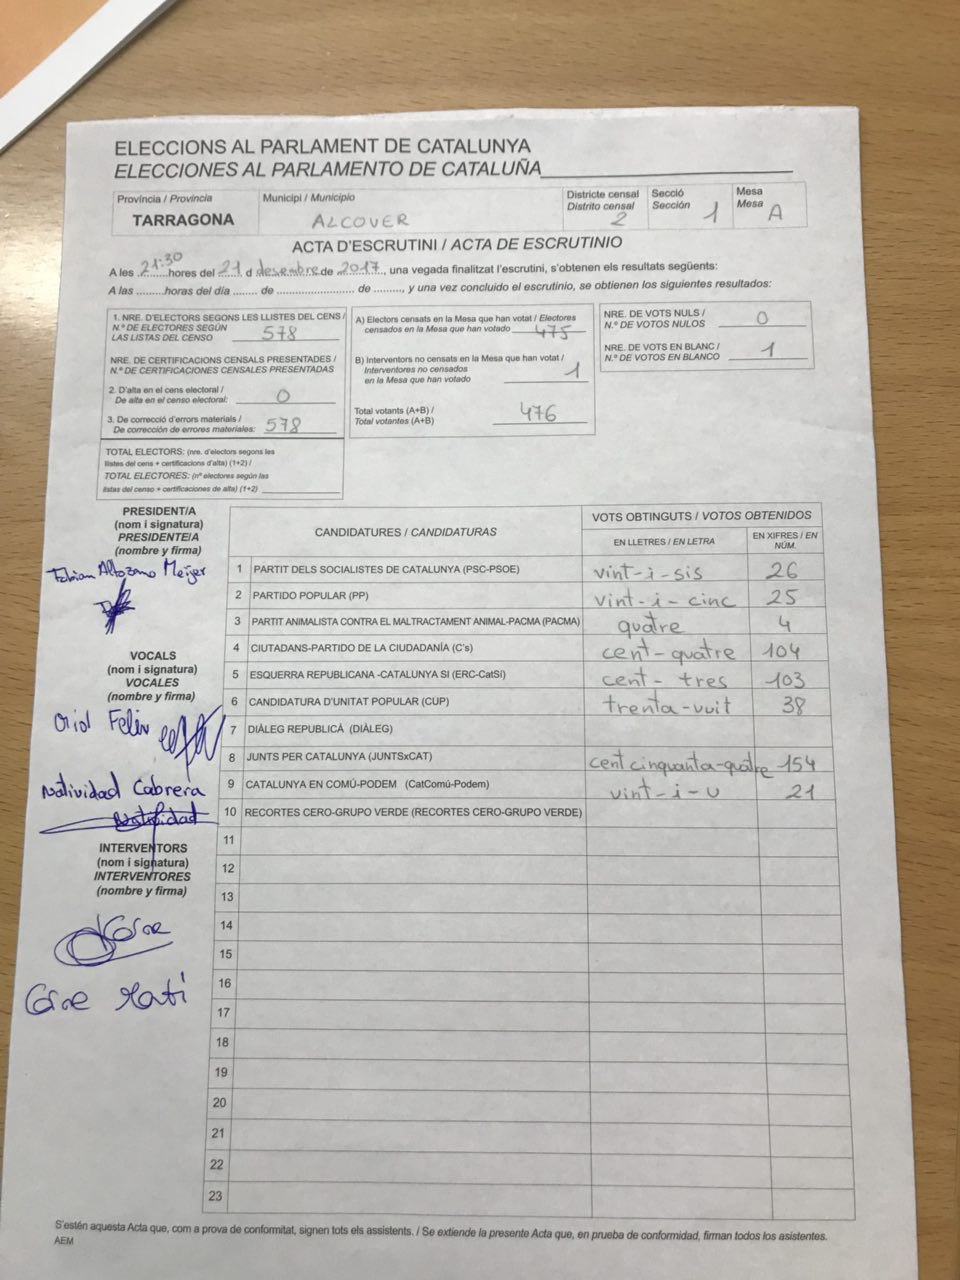 ELECCIONS AL PARLAMENT DE CATALUNYA
ELECCIONES AL PARLAMENTO DE CATALUÑA
Província / Provincia
TARRAGONA
Municipi / Municipio
ALCOVER
Districte censal
Distrito censal
2
Secció
Sección
1
Mesa
Mesa
A
ACTA D'ESCRUTINI / ACTA DE ESCRUTINIO
A les 21:30 hores del 21 d desembre de 2017, una vegada finalitzat l'escrutini, s'obtenen els resultats següents:
A las ......... horas del día ....... de ........................ de ........, y una vez concluido el escrutinio, se obtienen los siguientes resultados:
1. NRE. D'ELECTORS SEGONS LES LLISTES DEL CENS /
N.º DE ELECTORES SEGÚN
LAS LISTAS DEL CENSO 578
NRE. DE CERTIFICACIONS CENSALS PRESENTADES /
N.º DE CERTIFICACIONES CENSALES PRESENTADAS
2. D'alta en el cens electoral /
De alta en el censo electoral: 0
3. De correcció d'errors materials /
De corrección de errores materiales: 578
TOTAL ELECTORS: (nre. d'electors segons les
llistes del cens + certificacions d'alta) (1+2) /
TOTAL ELECTORES: (nº electores según las
listas del censo + certificaciones de alta) (1+2)
A) Electors censats en la Mesa que han votat / Electores
censados en la Mesa que han votado 475
B) Interventors no censats en la Mesa que han votat /
Interventores no censados
en la Mesa que han votado 1
Total votants (A+B) /
Total votantes (A+B) 476
NRE. DE VOTS NULS /
N.º DE VOTOS NULOS 0
NRE. DE VOTS EN BLANC /
N.º DE VOTOS EN BLANCO 1
PRESIDENT/A
(nom i signatura)
PRESIDENTE/A
(nombre y firma)
Fabian Altozano Meijer
VOCALS
(nom i signatura)
VOCALES
(nombre y firma)
Oriol Felix
Natividad Cabrera
Natividad
INTERVENTORS
(nom i signatura)
INTERVENTORES
(nombre y firma)
CANDIDATURES / CANDIDATURAS
VOTS OBTINGUTS / VOTOS OBTENIDOS
EN LLETRES / EN LETRA
EN XIFRES / EN NÚM.
1 PARTIT DELS SOCIALISTES DE CATALUNYA (PSC-PSOE) vint-i-sis 26
2 PARTIDO POPULAR (PP) vint-i-cinc 25
3 PARTIT ANIMALISTA CONTRA EL MALTRACTAMENT ANIMAL-PACMA (PACMA) quatre 4
4 CIUTADANS-PARTIDO DE LA CIUDADANÍA (C's) cent-quatre 104
5 ESQUERRA REPUBLICANA -CATALUNYA SI (ERC-CatSí) cent-tres 103
6 CANDIDATURA D'UNITAT POPULAR (CUP) trenta-vuit 38
7 DIÀLEG REPUBLICÀ (DIÀLEG)
8 JUNTS PER CATALUNYA (JUNTSxCAT) cent cinquanta-quatre 154
9 CATALUNYA EN COMÚ-PODEM (CatComú-Podem) vint-i-u 21
10 RECORTES CERO-GRUPO VERDE (RECORTES CERO-GRUPO VERDE)
11
12
13
14
15
16
17
18
19
20
21
22
23
S'estén aquesta Acta que, com a prova de conformitat, signen tots els assistents. / Se extiende la presente Acta que, en prueba de conformidad, firman todos los asistentes.
AEM